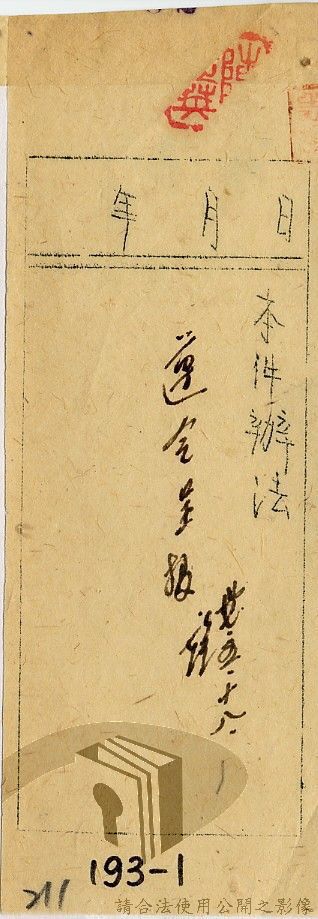 年 月 日
本件辦法
遵令呈報
五.十八.
193-1
211
請合法使用公開之影像